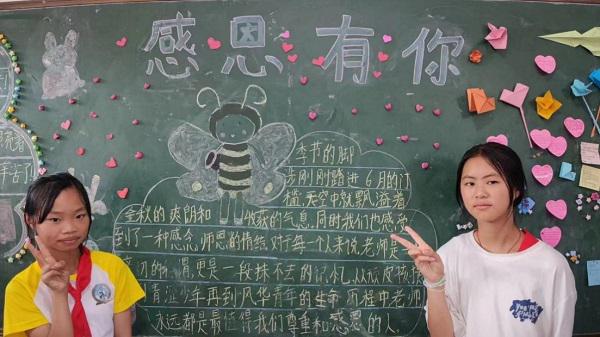 感恩有你
季节的脚
步刚刚踏进6月的门
槛，天空中就飘溢着
金秋的爽朗和收获的气息，同时我们也感受
到了一种感念，师恩的情结，对于每个人来说，老师是
更是一段抹不去的记忆，从
青涩少年再到风华青年的生命历程中，老师
永远都是最值得我们尊重和感恩的人。